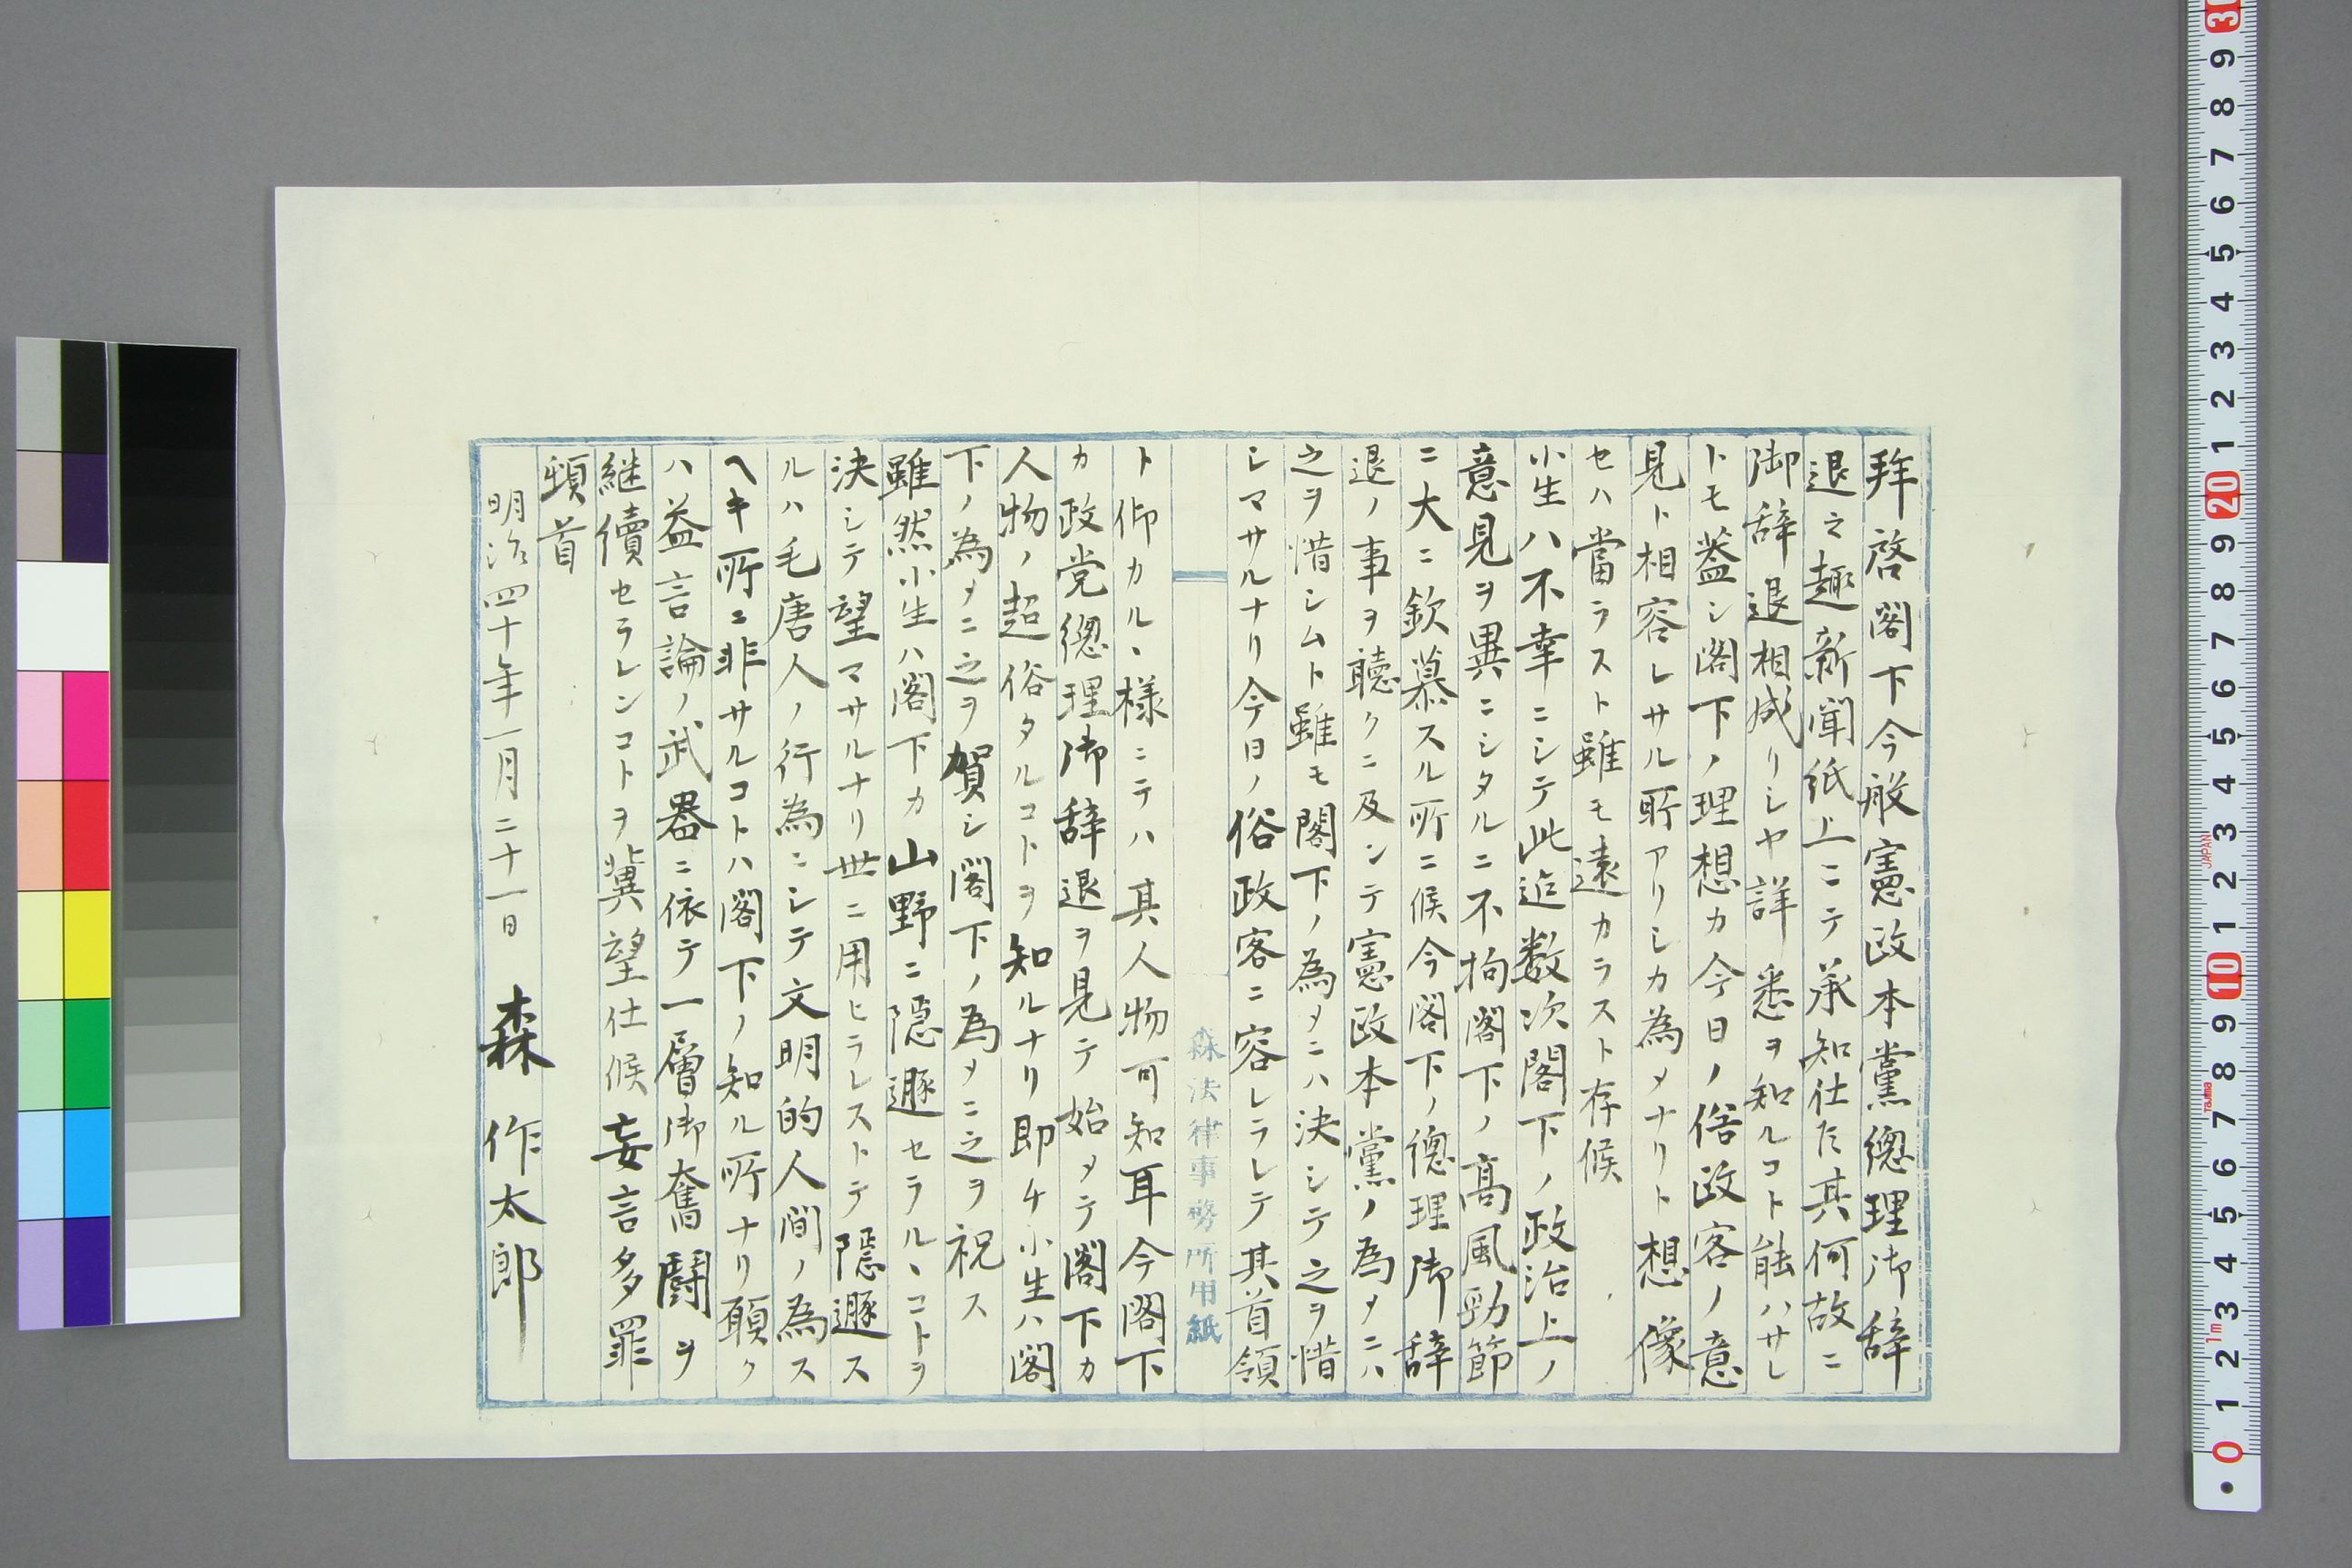 拜啓閣下今般憲政本黨總理御辞
退之趣新聞紙上ニテ承知仕候其何故ニ
御辞退相成リシヤ詳悉ヲ知ルコト能ハサレ
トモ蓋シ閣下ノ理想カ今日ノ俗政客ノ意
見ト相容レサル所アリシカ為メナリト想像
セハ當ラスト雖モ遠カラスト存候
小生ハ不幸ニシテ此迠数次閣下ノ政治上ノ
意見ヲ異ニシタルニ不拘閣下ノ高風勁節
ニ大ニ欽慕スル所ニ候今閣下ノ總理御辞
退ノ事ヲ聽クニ及ンテ憲政本黨ノ為メニハ
之ヲ惜シムト雖モ閣下ノ為メニハ決シテ之ヲ惜
シマサルナリ今日ノ俗政客ニ容レラレテ其首領
森法律事務所用紙
ト仰カルヽ様ニテハ其人物可知耳今閣下
カ政党總理御辞退ヲ見テ始メテ閣下カ
人物ノ超俗タルコトヲ知ルナリ即チ小生ハ閣
下ノ為メニ之ヲ賀シ閣下ノ為メニ之ヲ祝ス
雖然小生ハ閣下カ山野ニ隠遯セラルヽコトヲ
決シテ望マサルナリ世ニ用ヒラレストテ隠遯ス
ルハ毛唐人ノ行為ニシテ文明的人間ノ為ス
ヘキ所ニ非サルコトハ閣下ノ知ル所ナリ願ク
ハ益言論ノ武器ニ依テ一層御奮鬪ヲ
継續セラレンコトヲ冀望仕候妄言多罪
頓首
明治四十年一月二十一日 森作太郎
30
9
8
7
6
5
4
3
2
1
20
9
8
7
6
5
4
3
2
1
10
9
8
7
6
5
4
3
2
1
0
JAPAN
Tajima
1m